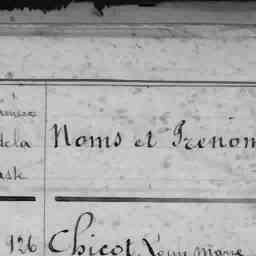 de la
Noms et Prenom
126 Chicot Louis Marie